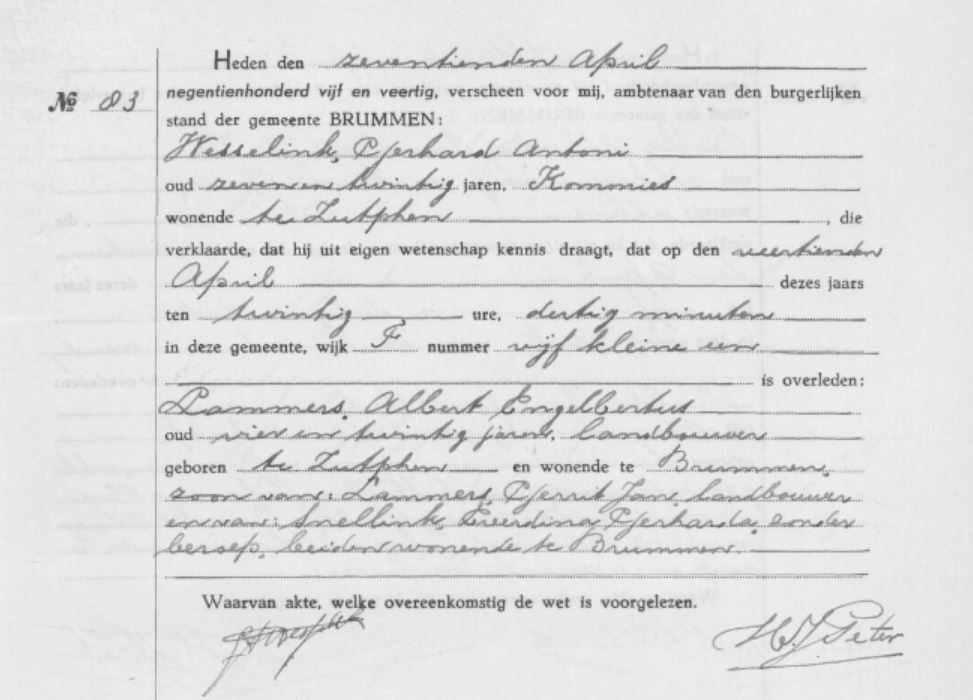 Heden den zeventienden April
№ 83
negentienhonderd vijf en veertig, verscheen voor mij, ambtenaar van den burgerlijken
stand der gemeente BRUMMEN:
Wesselink, Gerhard Antoni
oud zeven en twintig jaren, Kommies
wonende te Zutphen , die
verklaarde, dat hij uit eigen wetenschap kennis draagt, dat op den veertienden
April dezes jaars
ten twintig ure, dertig minuten
in deze gemeente, wijk F nummer vijf kleine
is overleden:
Lammers, Albert Engelbertus
oud vier en twintig jaren, landbouwer
geboren te Zutphen en wonende te Brummen,
zoon van: Lammers, Gerrit Jan, landbouwer
en van: Snellink, Everdina Gerharda, zonder
beroep, beiden wonende te Brummen.
Waarvan akte, welke overeenkomstig de wet is voorgelezen.
Peter